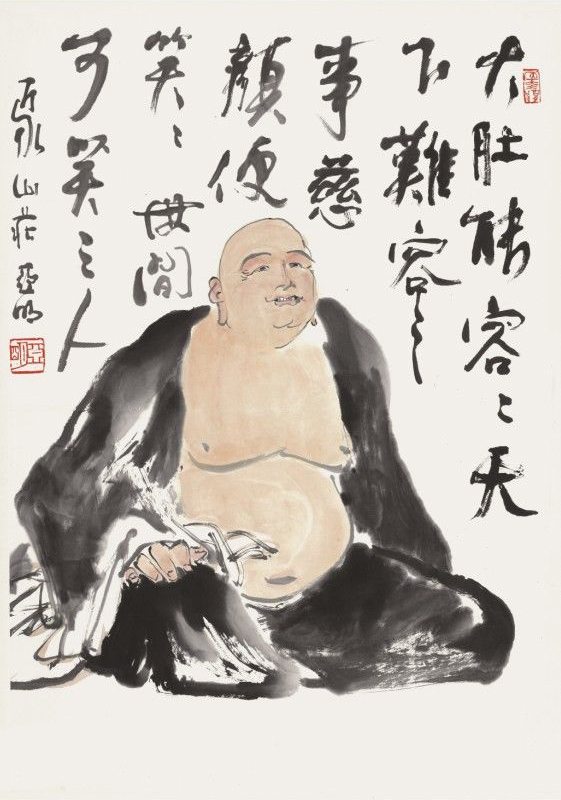 大肚能容〻天
下難容之
事慈
顏便
笑〻世間
可笑之人
近水山莊亞明
亞明